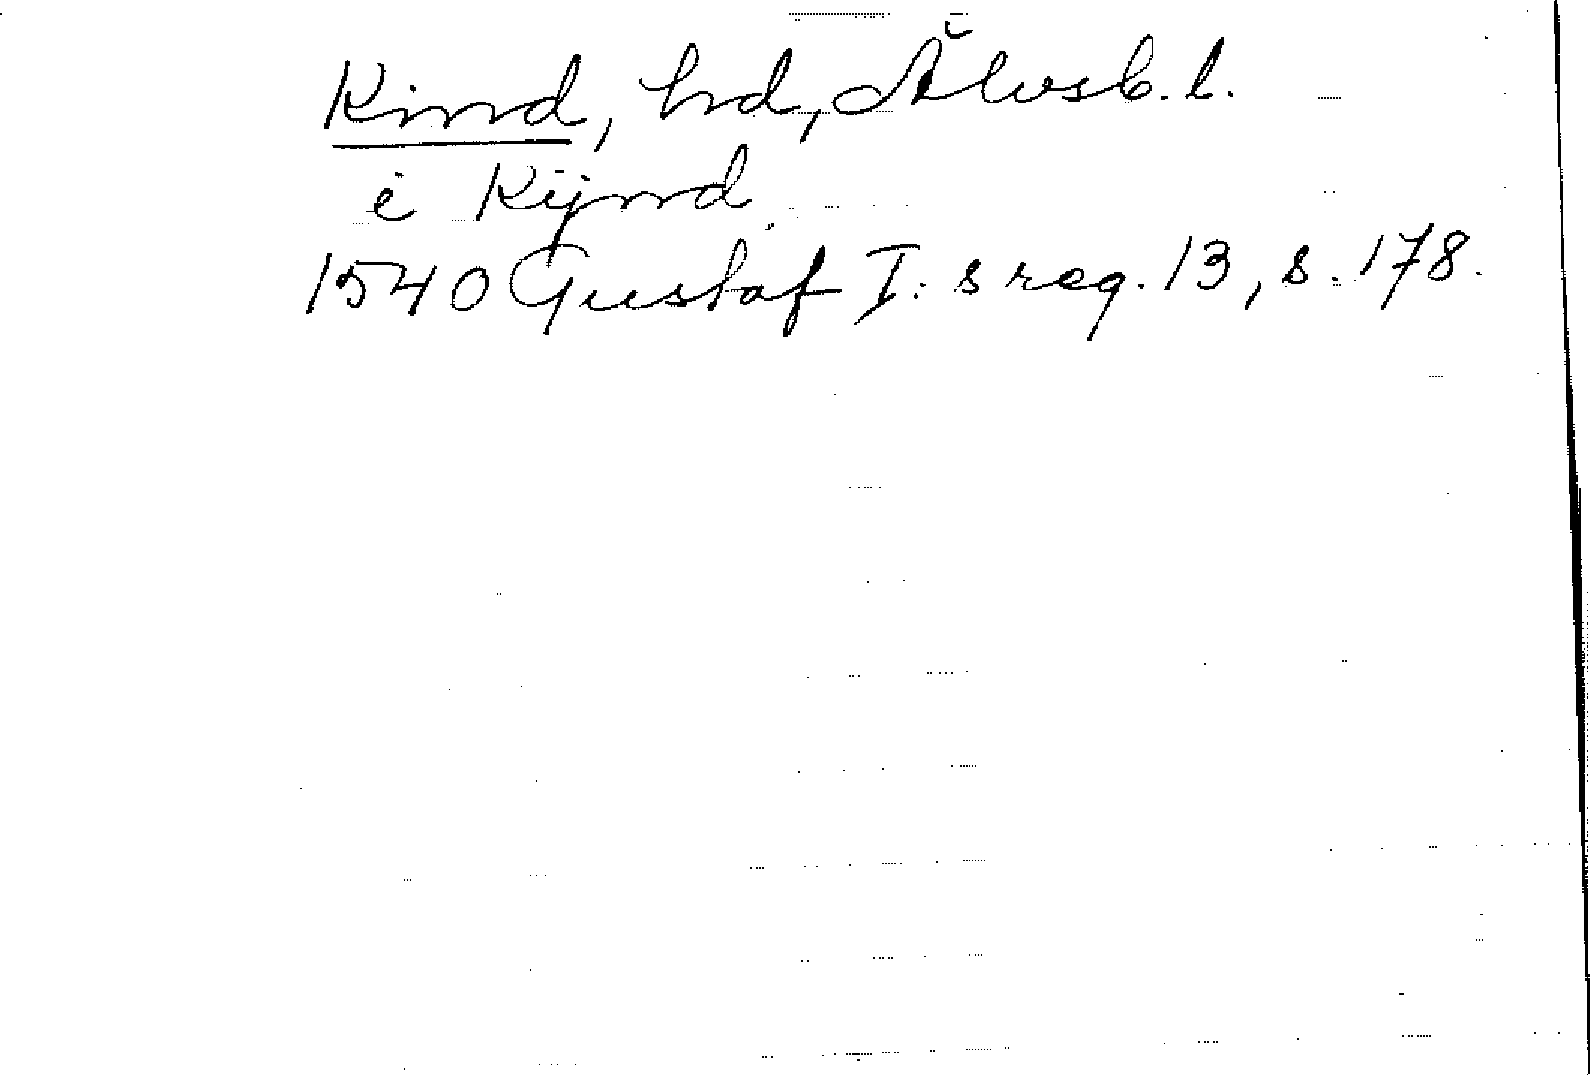 Kind, hd, Älvsb. l.
i Kijnd
1540 Gustaf I:s reg. 13, s. 178.